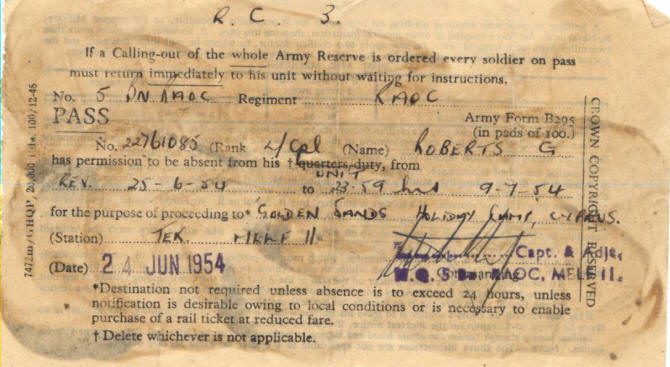 R. C. 3.
If a Calling-out of the whole Army Reserve is ordered every soldier on pass
must return immediately to his unit without waiting for instructions.
No. 5 BN RAOC Regiment RAOC
PASS
Army Form B295
(in pads of 100.)
No. 22761085 (Rank L/Cpl (Name) ROBERTS G
has permission to be absent from his † quarters/duty, from
UNIT
REV. 25-6-54 to 23-59 hrs 9-7-54
for the purpose of proceeding to* GOLDEN SANDS HOLIDAY CAMP, CYPRUS.
(Station) TEK MELF 11
Capt. & Adjt,
(Date) 24 JUN 1954
Commanding
H.Q. 5 Bn RAOC, MELF 11.
*Destination not required unless absence is to exceed 24 hours, unless
notification is desirable owing to local conditions or is necessary to enable
purchase of a rail ticket at reduced fare.
† Delete whichever is not applicable.
CROWN COPYRIGHT RESERVED
100/12-46